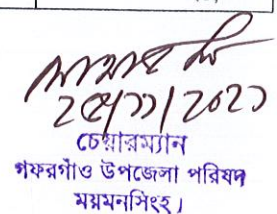 ২৫/১১/২০২১
চেয়ারম্যান
গফরগাঁও উপজেলা পরিষদ
ময়মনসিংহ।